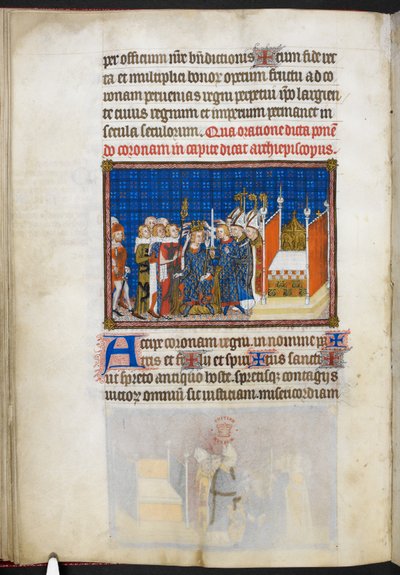 per officium nr̄e bn̄dictionis ✠ cum fide rec
ta et multiplici bonor opērum fructu ad co
ronam peruenias regni perpetui ip̄o largien
te cuius regnum et imperium permanet in
secula seculorum. Qua oratione dicta ponen
do coronam in capite dicat archiepiscopus.
Accipe coronam regni. in nomine pa
tris et fi✠lij et spiri✠tus sancti ✠
ut spreto antiquo hoste. spretisq; contagijs
uicior omnium sic iusticiam. misericordiam